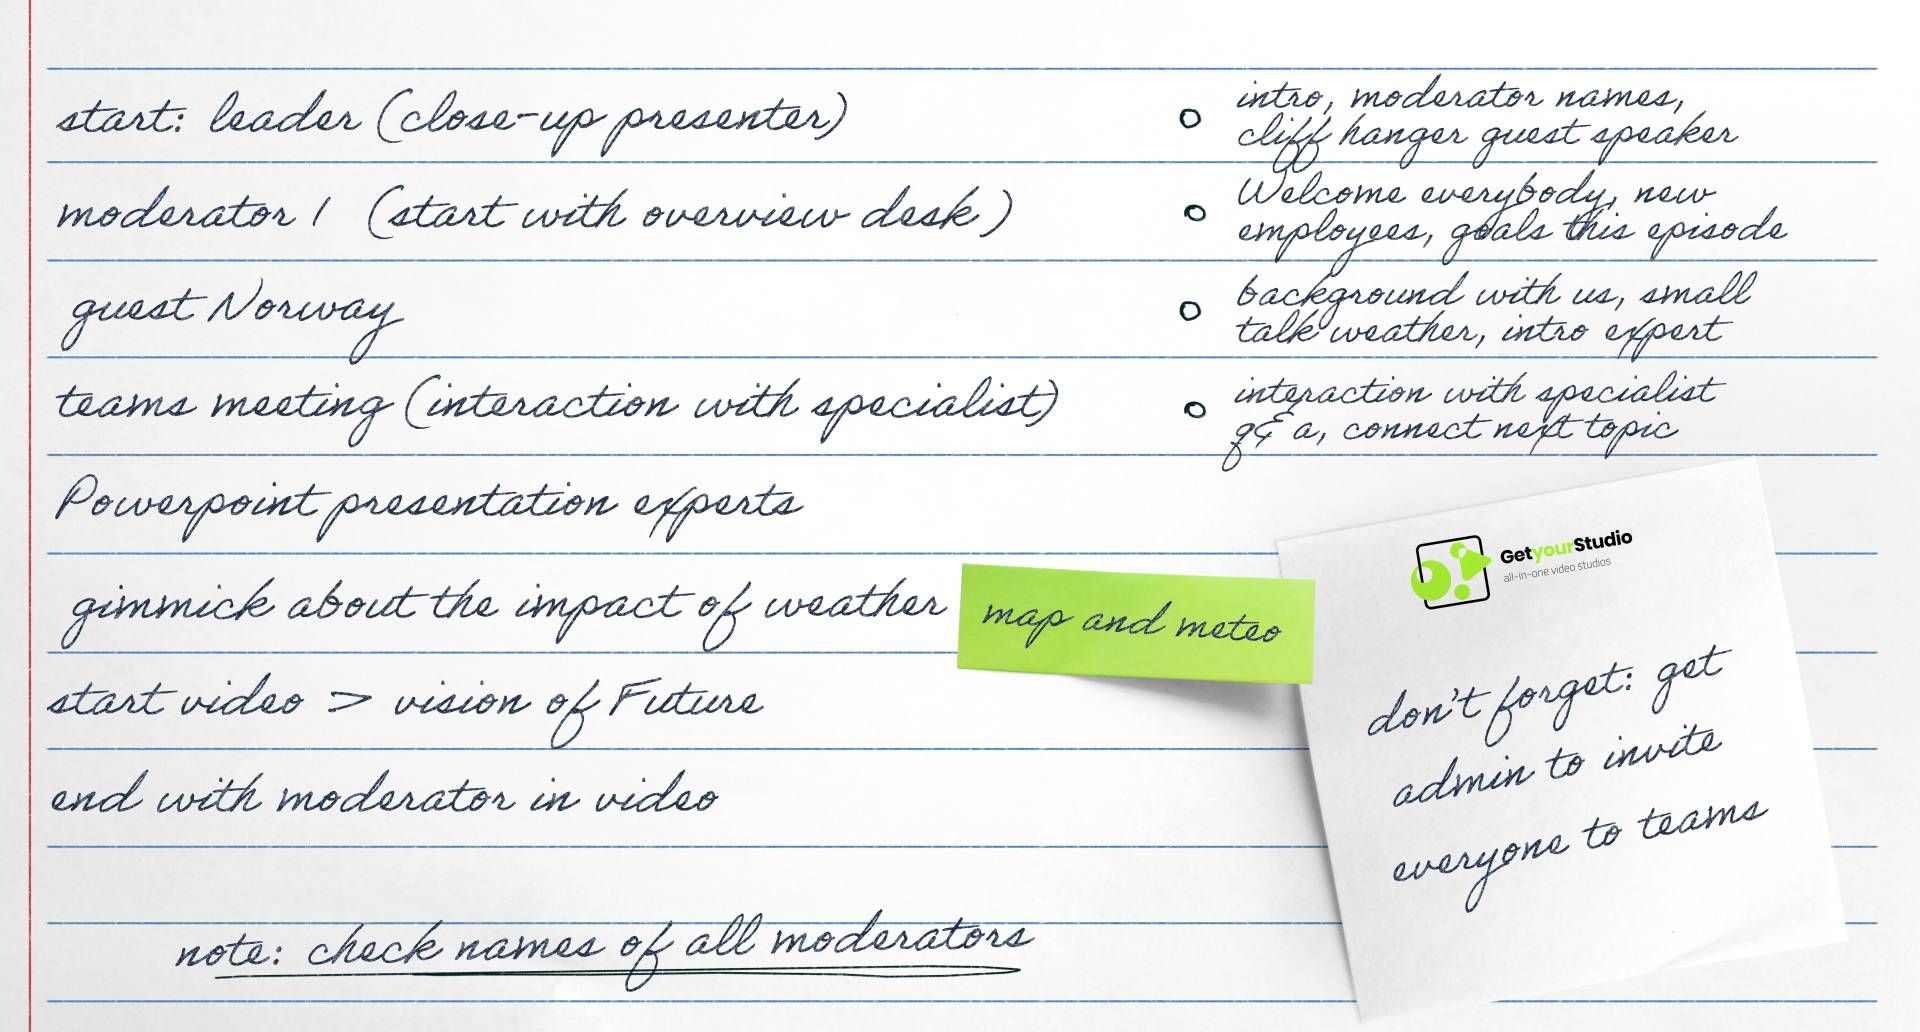 start: leader (close-up presenter)
intro, moderator names,
cliff hanger guest speaker
moderator 1 (start with overview desk)
Welcome everybody, new
employees, goals this episode
guest Norway
background with us, small
talk weather, intro expert
teams meeting (interaction with specialist)
interaction with specialist
q & a, connect next topic
Powerpoint presentation experts
gimmick about the impact of weather
map and meteo
start video > vision of Future
end with moderator in video
note: check names of all moderators
GetyourStudio
all-in-one video studios
don't forget: get
admin to invite
everyone to teams